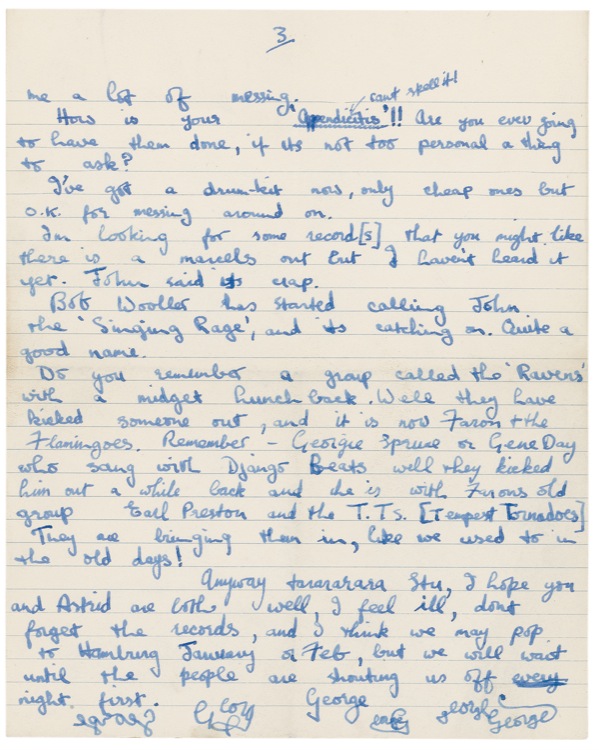 3
me a lot of messing.
cant spell it!
How is your 'Appendicitis'!! Are you ever going
to have them done, if its not too personal a thing
to ask?
I've got a drum-kit now, only cheap ones but
O.K. for messing around on.
Im looking for some record[s] that you might like
there is a marcels out but I haven't heard it
yet. John said its crap.
Bob Wooller has started calling John
the 'Singing Rage', and its catching on. Quite a
good name.
Do you remember a group called the 'Ravens'
with a midget hunch back. Well they have
kicked someone out, and it is now Faron + the
Flamingoes. Remember – Georgie Spruce or Gene Day
who sang with Django Beats well they kicked
him out a while back and he is with Farons old
group Earl Preston and the T.T.S. [Tempest Tornadoes]
They are bringing them in, like we used to in
the old days!
Anyway tarararara Stu, I hope you
and Astrid are both well, I feel ill, dont
forget the records, and I think we may pop
to Hamburg January or Feb, but we will wait
until the people are shouting us off every
night first. George
George